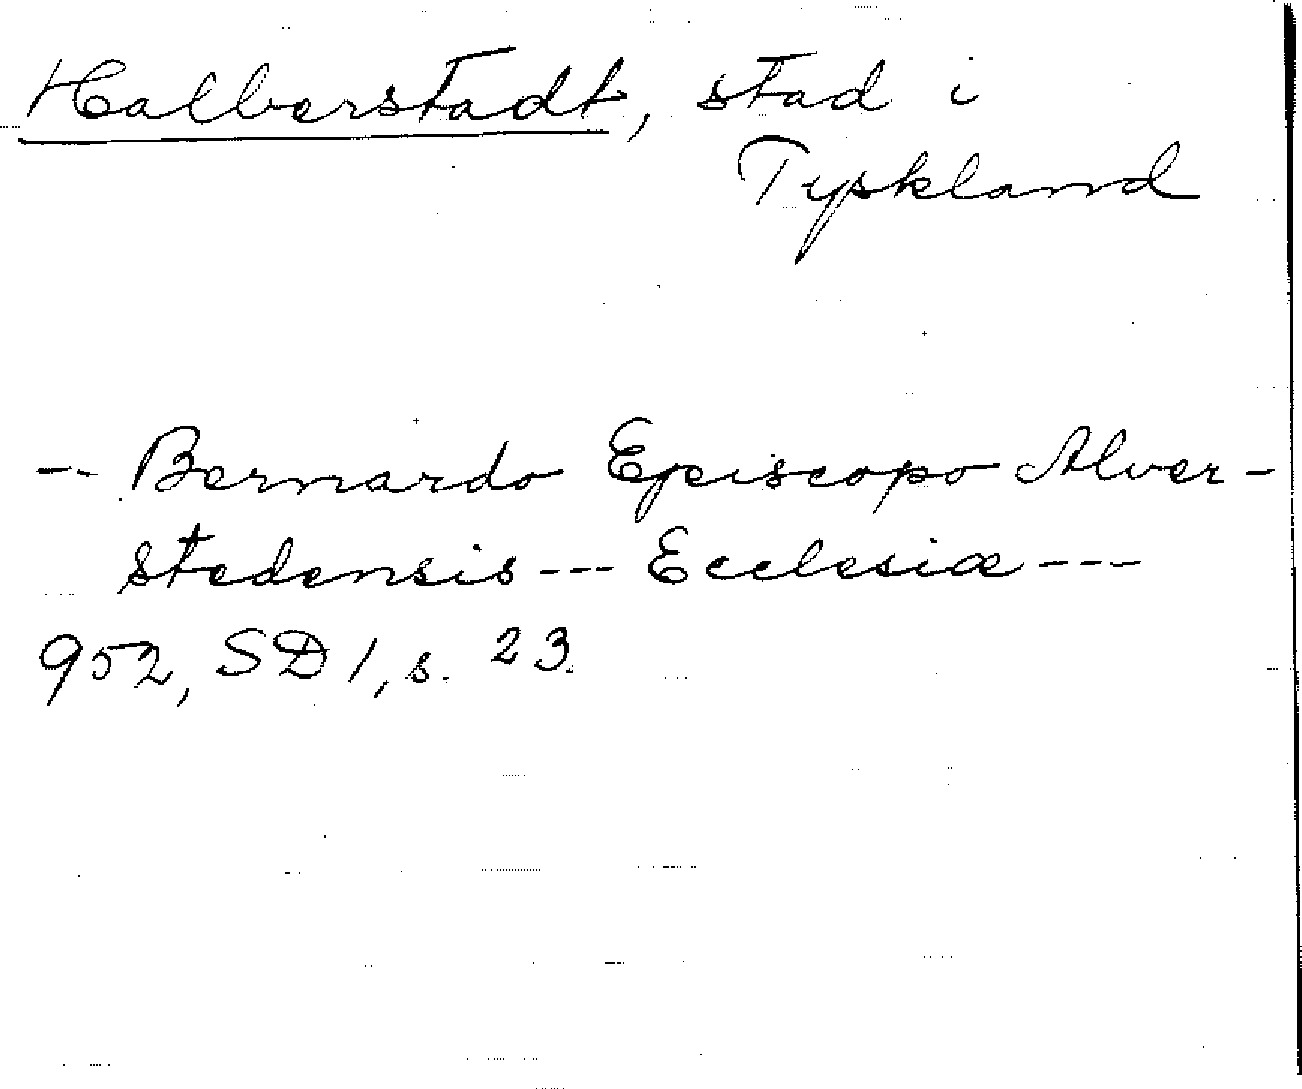 Halberstadt, stad i
Tyskland
-- Bernardo Episcopo Alver-
stedensis --- Ecclesiæ ---
952, SD 1, s. 23.